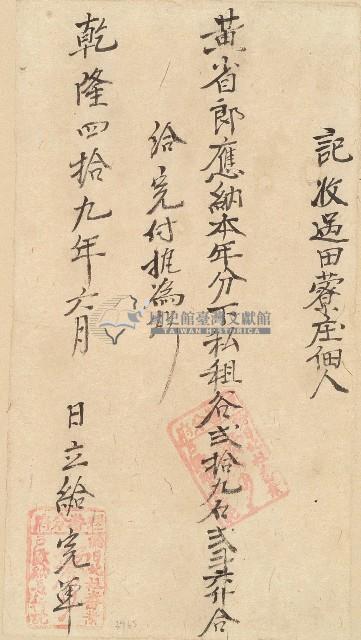 記收過田藔庄佃人
黃省郎應納本年分下私租谷貳拾九石貳斗
給完付推為照
乾隆四拾九年六月 日立給完單
國史館臺灣文獻館
TAIWAN HISTORICA